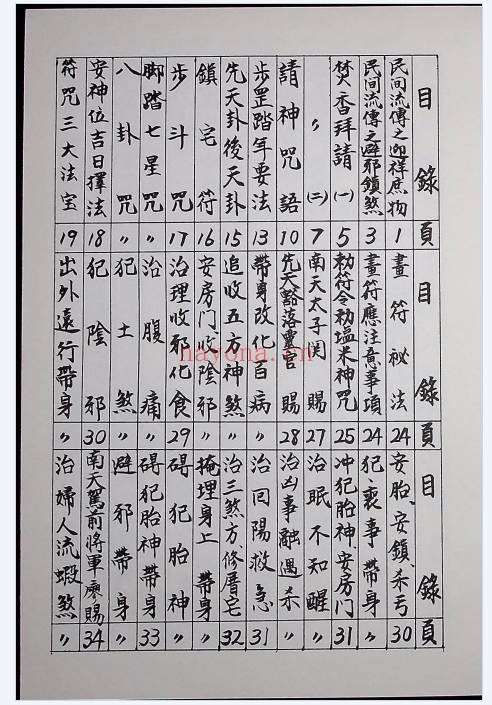 目錄 頁
民間流傳之迎祥庶物 1
民間流傳之避邪鎮煞 3
焚香拜請(一) 5
〃(二) 7
請神咒語 10
步罡踏年要法 13
先天卦後天卦 15
鎮宅符 16
步斗咒 17
脚踏七星咒 〃
八卦咒 〃
安神位吉日擇法 18
符咒三大法宝 19
目錄 頁
畫符祕法 24
畫符應注意事項 24
勅符令勅塩米神咒 25
南天太子関賜 27
先天豁落靈官賜 28
帶身改化百病 〃
追收五方神煞 〃
安房門收陰邪 〃
治理收邪化食 29
治腹痛 〃
犯土煞 〃
犯陰邪 30
出外遠行帶身 〃
目錄 頁
安胎、安鎮、杀弓 30
犯喪事帶身 〃
冲犯胎神、安房門 31
治眠不知醒 〃
治凶事融遇杀 〃
治回陽救急 31
治三煞方、修厝宅 32
掩理身上帶身 〃
碍犯胎神 〃
碍犯胎神帶身 33
避邪帶身 〃
南天駕前將軍廖賜 34
治婦人流蝦煞 〃
hayona.cn